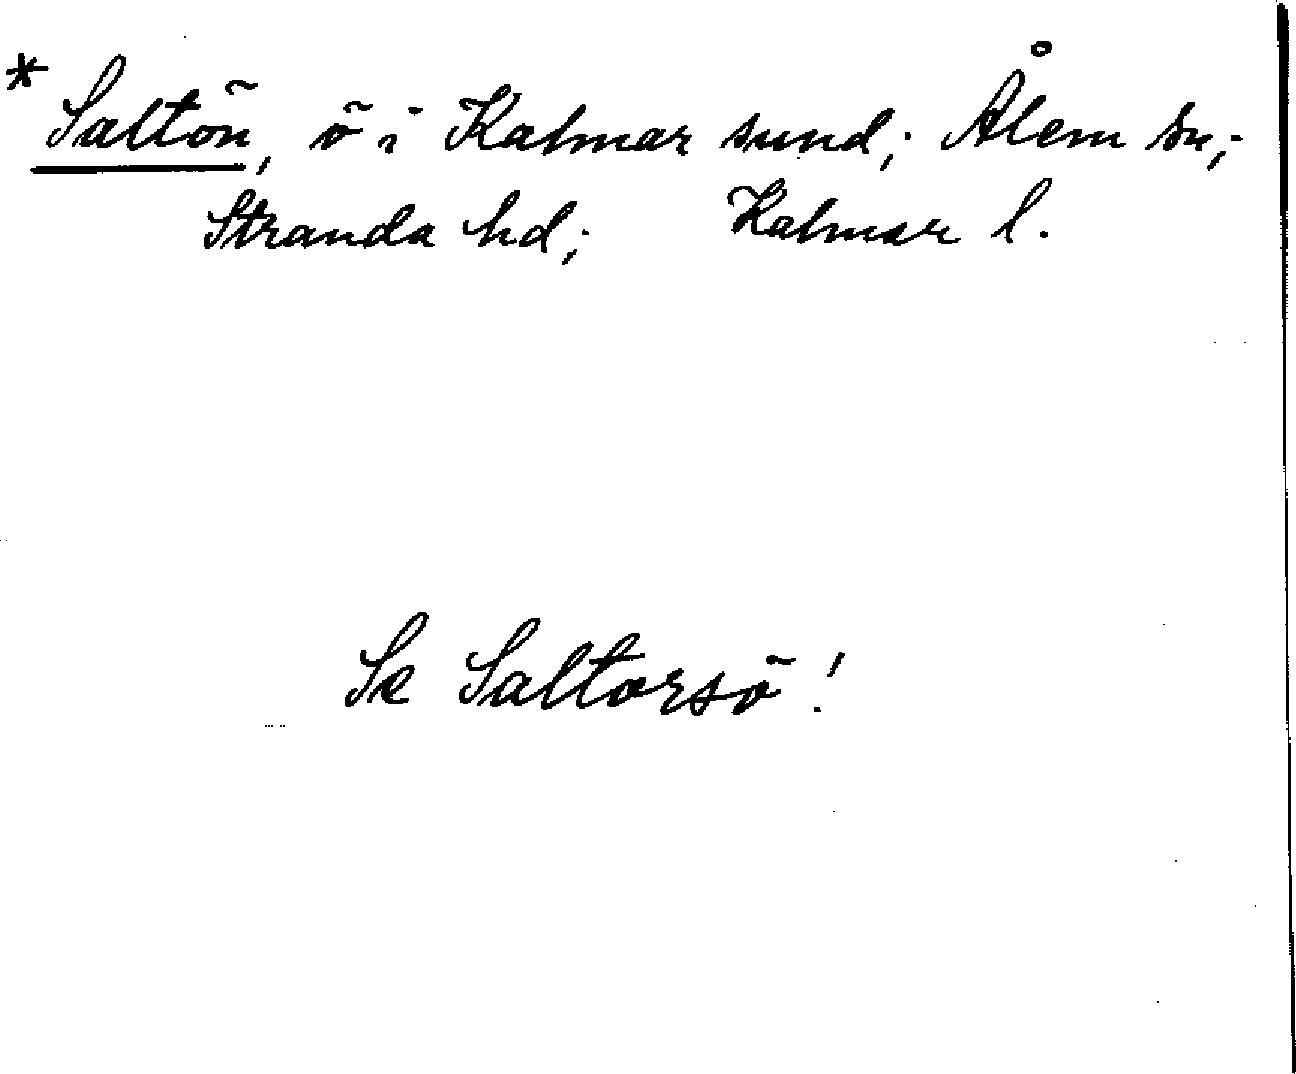 * Saltön, ö i Kalmar sund; Ålem sn;
Stranda hd; Kalmar l.
Se Saltorsö!